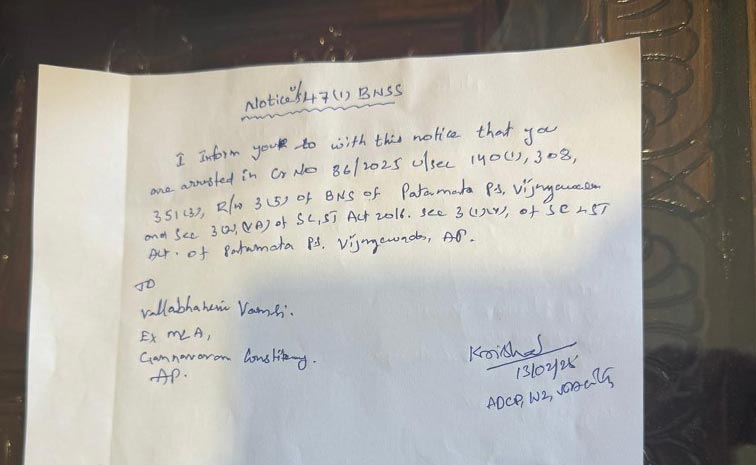 Notice u/s 47(1) BNSS
I Inform you to with this notice that you
are arrested in Cr No 86/2025 U/sec 140(1), 308,
351(3), R/w 3(5) of BNS of Patamata PS, Vijayawada
and Sec 3(2)(VA) of SC, ST Act 2016. Sec 3(1)(r), of SC & ST
Act. of Patamata PS. Vijayawada, AP.
TO
Vallabhaneni Vamsi.
Ex MLA,
Gannavaram Constituency.
AP.
13/02/25
ADCP, W2,